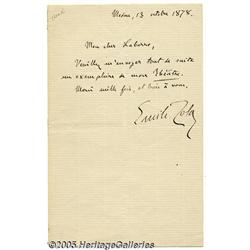 Médan, 13 octobre 1878.
Mon cher Laborde,
Veuillez m'envoyer tout de suite
un exemplaire de mon Théâtre.
Merci mille fois, et bien à vous.
Emile Zola
©2005 HeritageGalleries